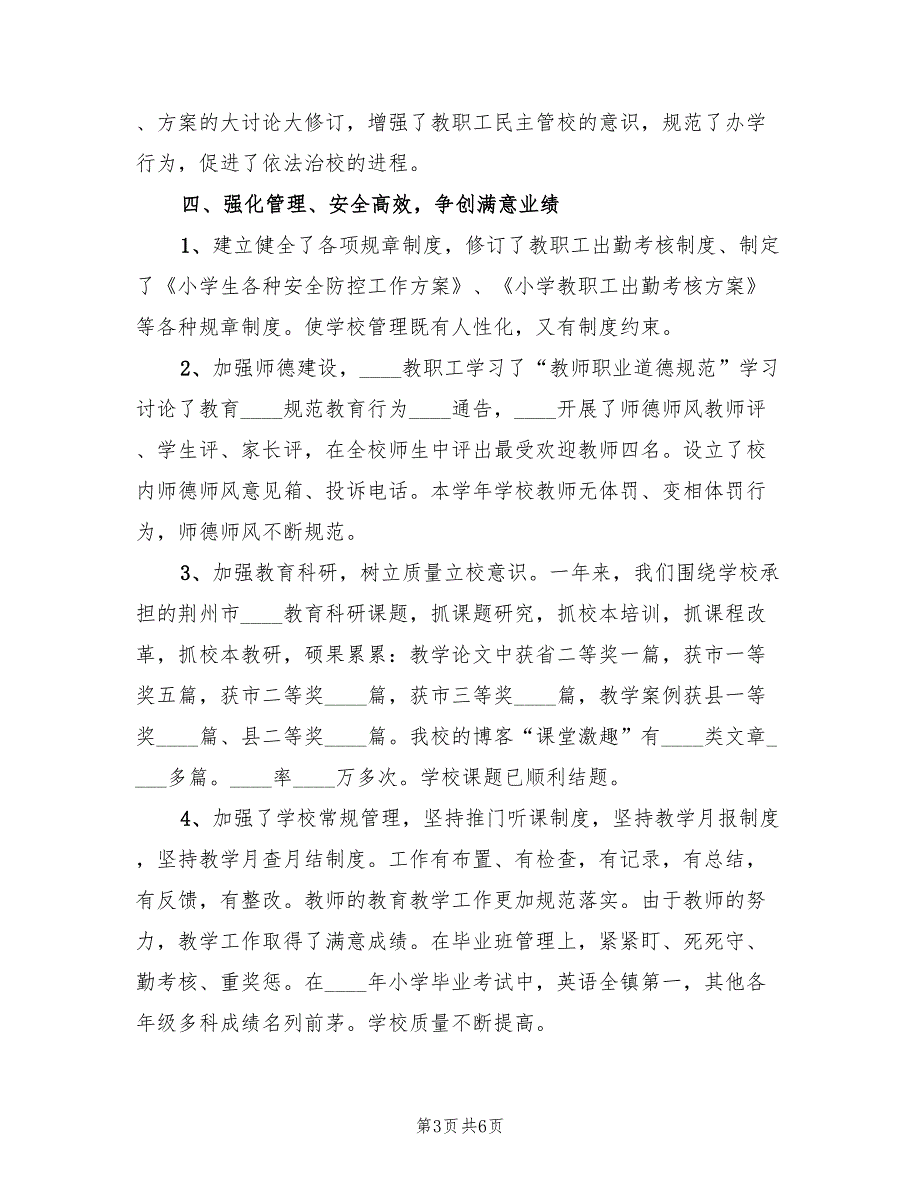 、方案的大讨论大修订，增强了教职工民主管校的意识，规范了办学
行为，促进了依法治校的进程。
四、强化管理、安全高效，争创满意业绩
1、建立健全了各项规章制度，修订了教职工出勤考核制度、制定
了《小学生各种安全防控工作方案》、《小学教职工出勤考核方案》
等各种规章制度。使学校管理既有人性化，又有制度约束。
2、加强师德建设，____教职工学习了“教师职业道德规范”学习
讨论了教育____规范教育行为____通告，____开展了师德师风教师评
、学生评、家长评，在全校师生中评出最受欢迎教师四名。设立了校
内师德师风意见箱、投诉电话。本学年学校教师无体罚、变相体罚行
为，师德师风不断规范。
3、加强教育科研，树立质量立校意识。一年来，我们围绕学校承
担的荆州市____教育科研课题，抓课题研究，抓校本培训，抓课程改
革，抓校本教研，硕果累累：教学论文中获省二等奖一篇，获市一等
奖五篇，获市二等奖____篇，获市三等奖____篇，教学案例获县一等
奖____篇、县二等奖____篇。我校的博客“课堂激趣”有____类文章_
___多篇。____率____万多次。学校课题已顺利结题。
4、加强了学校常规管理，坚持推门听课制度，坚持教学月报制度
，坚持教学月查月结制度。工作有布置、有检查，有记录，有总结，
有反馈，有整改。教师的教育教学工作更加规范落实。由于教师的努
力，教学工作取得了满意成绩。在毕业班管理上，紧紧盯、死死守、
勤考核、重奖惩。在____年小学毕业考试中，英语全镇第一，其他各
年级多科成绩名列前茅。学校质量不断提高。
第3页共6页